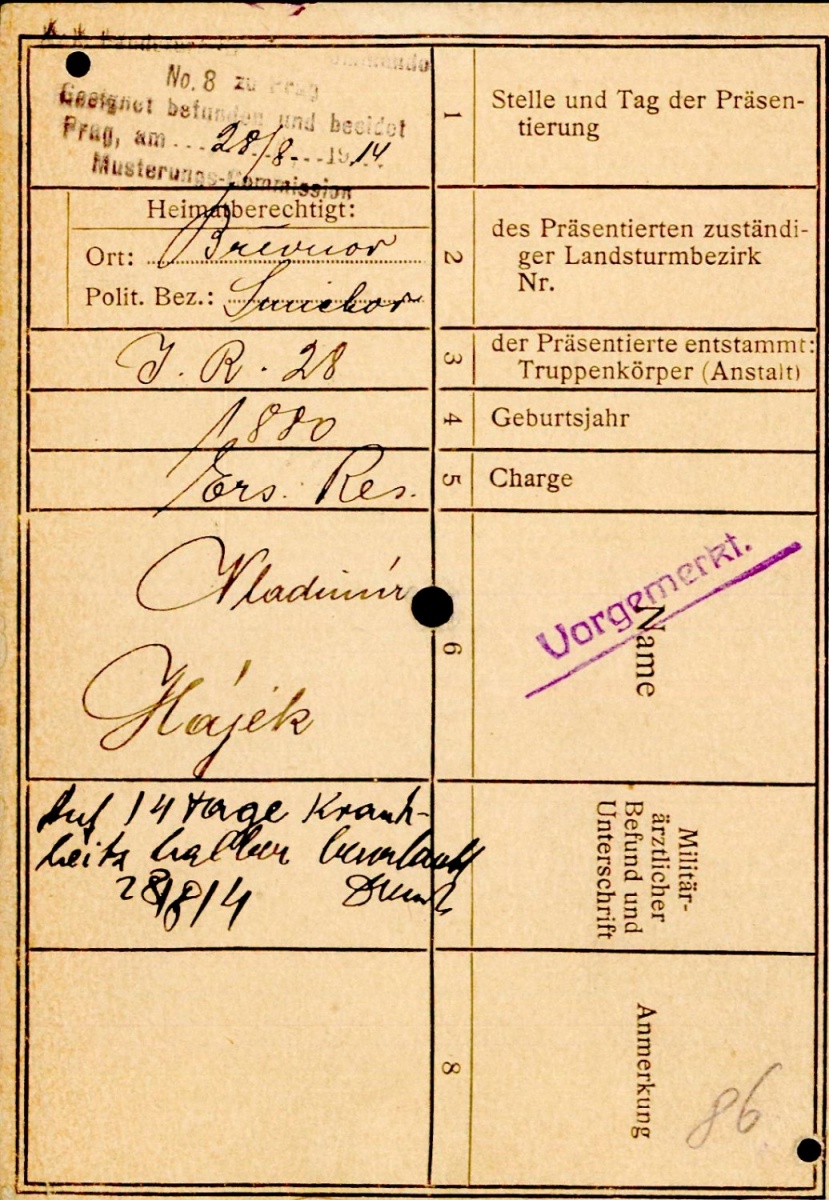 No. 8 zu Prag
Geeignet befunden und beeidet
Prag, am 28/8. 1914
Musterungs-Commission
1
Stelle und Tag der Präsen-
tierung
Heimatberechtigt:
Ort: Břevnov
Polit. Bez.: Smichov
2
des Präsentierten zuständi-
ger Landsturmbezirk
Nr.
J. R. 28
3
der Präsentierte entstammt:
Truppenkörper (Anstalt)
1880
4
Geburtsjahr
Ers. Res.
5
Charge
Vladimír
Hájek
6
Name
Vorgemerkt.
Auf 14 tage Krank-
heits halber beurlaubt
28/8/14
Militär-
ärztlicher
Befund und
Unterschrift
8
Anmerkung
86